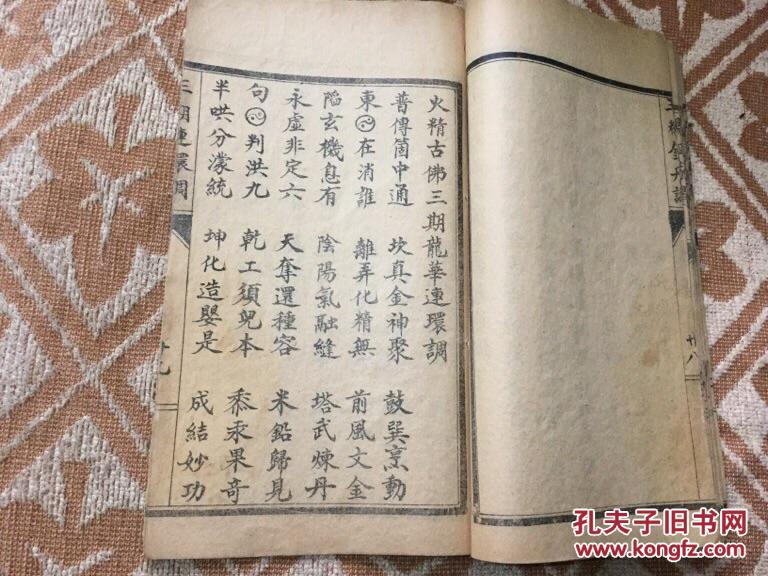 廿八
火精古佛三期龍華連環調
普傳箇中通 坎真金神聚 鼓巽烹動
東☯在消誰 離弄化精無 前風文金
陷玄機息有 陰陽氣融縫 塔武煉丹
永虛非定六 天奪還種容 米鉛歸見
句☯判洪九 乾工須兒本 黍汞果奇
半哄分濛統 坤化造嬰是 成結妙功
三期連環調
孔夫子旧书网
www.kongfz.com